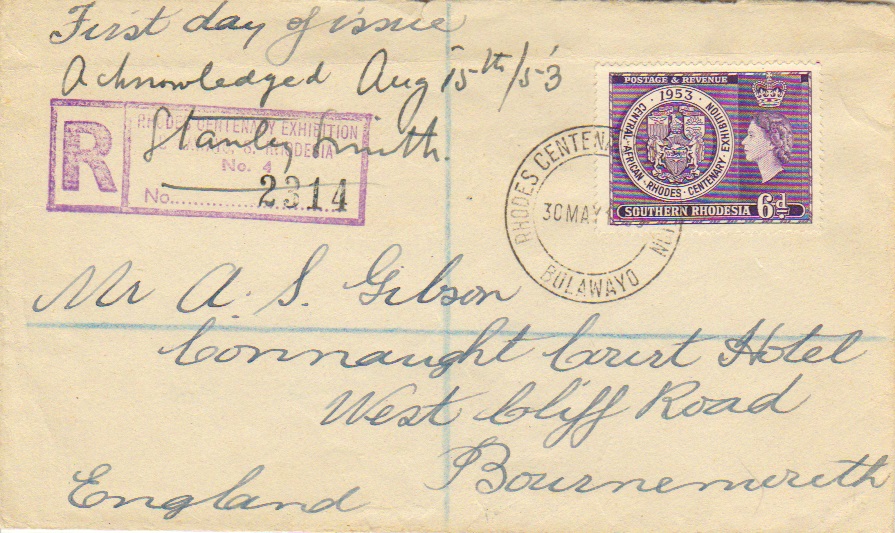 First day of issue
Acknowledged Aug 15th/53
Stanley Smith.
R
RHODES CENTENARY EXHIBITION
S. RHODESIA
No. 4
No. 2314
POSTAGE & REVENUE
1953
CENTRAL · AFRICAN · RHODES · CENTENARY EXHIBITION
SOUTHERN RHODESIA 6d
RHODES CENTENA
30 MAY
BULAWAYO
Mr A. S. Gibson
Connaught Court Hotel
West Cliff Road
Bournemouth
England